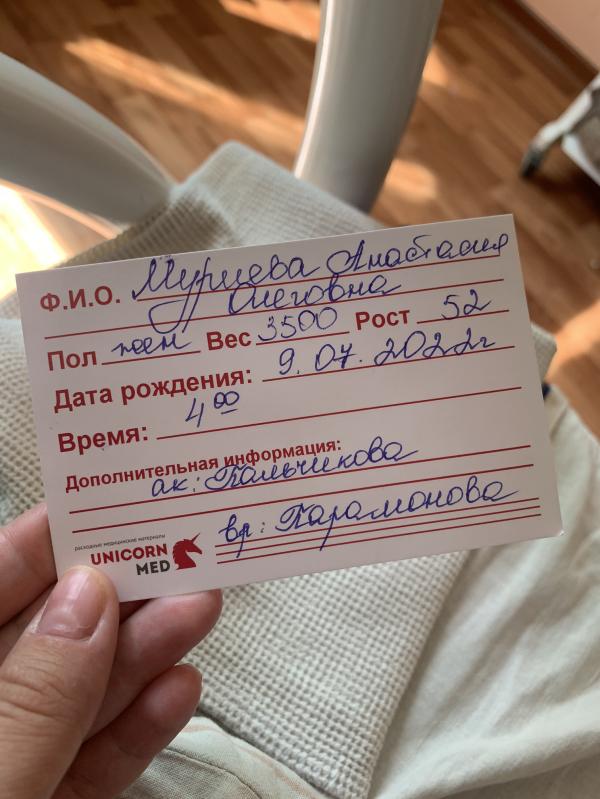 Ф.И.О. Мурцева Анастасия
Олеговна
Пол жен Вес 3500 Рост 52
Дата рождения: 9.07.2022г
Время: 4 00
Дополнительная информация:
ак: Пальчикова
вр: Парамонова
расходные медицинские материалы
UNICORN
MED